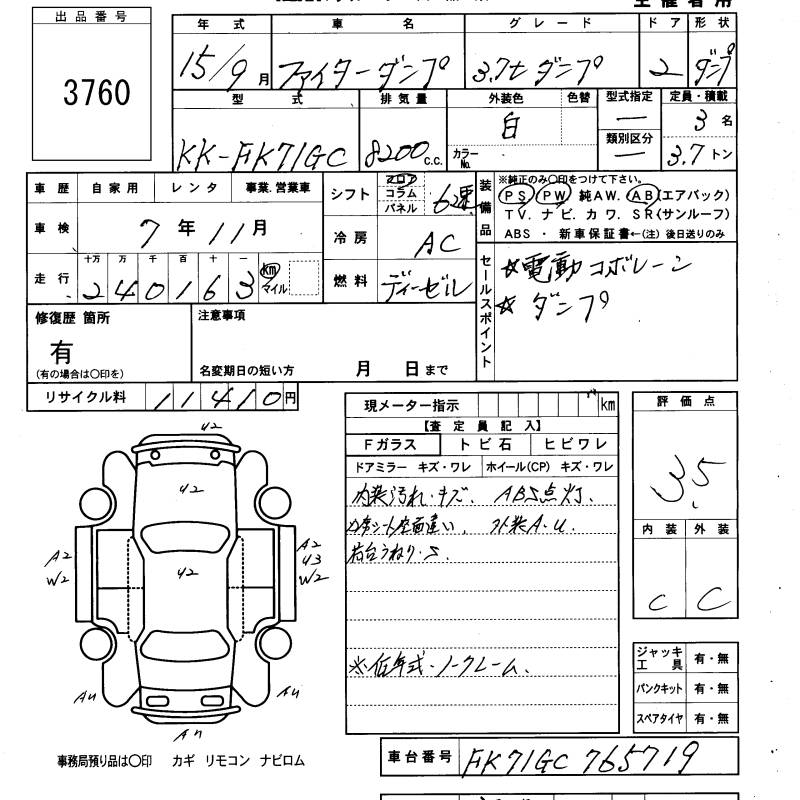 出品番号
3760
年式 車名 グレード ドア 形状
15/9月 ファイターダンプ 3.7t ダンプ 2 ダンプ
型式 排気量 外装色 色替 型式指定 定員・積載
KK-FK71GC 8200C.C. 白 カラーNo. ー 3名
類別区分
ー 3.7トン
車歴 自家用 レンタ 事業.営業車
車検 7年11月
走行 十万 万 千 百 十 一 km マイル
240163
シフト フロア コラム パネル 6速
冷房 AC
燃料 ディーゼル
装備品
※純正のみ〇印をつけて下さい。
PS PW 純AW. AB(エアバック)
TV. ナビ. カワ. SR(サンルーフ)
ABS ・ 新車保証書←(注) 後日送りのみ
セールスポイント
☆電動コボレーン
☆ダンプ
修復歴 箇所
有
(有の場合は〇印を)
注意事項
名変期日の短い方 月 日まで
リサイクル料 11410円
現メーター指示 km
【査定員記入】
Fガラス トビ石 ヒビワレ
ドアミラー キズ・ワレ ホイール(CP) キズ・ワレ
内装汚れ・キズ. ABS点灯.
外装A・U.
荷台うねり・S.
※低年式・ノークレーム.
評価点
3.5
内装 外装
C C
ジャッキ工具 有・無
パンクキット 有・無
スペアタイヤ 有・無
U2
U2
U2
A2
W2
A2
U3
W2
AU
AU
事務局預り品は〇印 カギ リモコン ナビロム
車台番号 FK71GC 765719